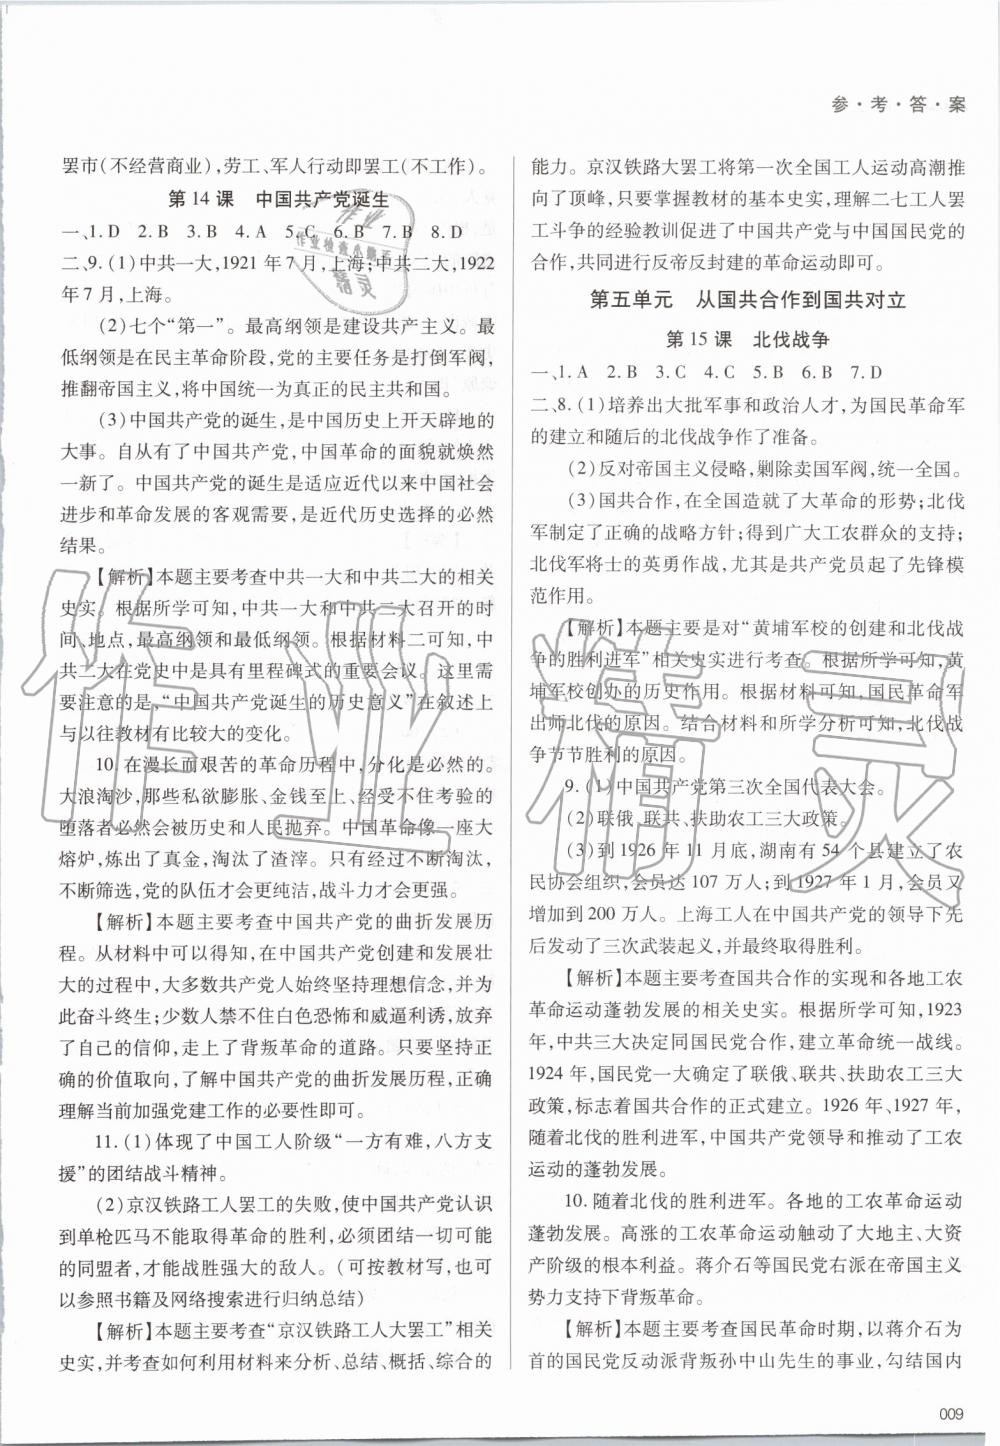 参·考·答·案
罢市(不经营商业),劳工、军人行动即罢工(不工作)。
第 14 课　中国共产党诞生
一、1. D　2. B　3. B　4. A　5. C　6. B　7. B　8. D
二、9. (1)中共一大,1921 年 7 月,上海;中共二大,1922
年 7 月,上海。
(2)七个“第一”。最高纲领是建设共产主义。最
低纲领是在民主革命阶段,党的主要任务是打倒军阀,
推翻帝国主义,将中国统一为真正的民主共和国。
(3)中国共产党的诞生,是中国历史上开天辟地的
大事。自从有了中国共产党,中国革命的面貌就焕然
一新了。中国共产党的诞生是适应近代以来中国社会
进步和革命发展的客观需要,是近代历史选择的必然
结果。
【解析】本题主要考查中共一大和中共二大的相关
史实。根据所学可知,中共一大和中共二大召开的时
间、地点,最高纲领和最低纲领。根据材料二可知,中
共二大在党史中是具有里程碑式的重要会议。这里需
要注意的是,“中国共产党诞生的历史意义”在叙述上
与以往教材有比较大的变化。
10. 在漫长而艰苦的革命历程中,分化是必然的。
大浪淘沙,那些私欲膨胀、金钱至上、经受不住考验的
堕落者必然会被历史和人民抛弃。中国革命像一座大
熔炉,炼出了真金,淘汰了渣滓。只有经过不断淘汰,
不断筛选,党的队伍才会更纯洁,战斗力才会更强。
【解析】本题主要考查中国共产党的曲折发展历
程。从材料中可以得知,在中国共产党创建和发展壮
大的过程中,大多数共产党人始终坚持理想信念,并为
此奋斗终生;少数人禁不住白色恐怖和威逼利诱,放弃
了自己的信仰,走上了背叛革命的道路。只要坚持正
确的价值取向,了解中国共产党的曲折发展历程,正确
理解当前加强党建工作的必要性即可。
11. (1)体现了中国工人阶级“一方有难,八方支
援”的团结战斗精神。
(2)京汉铁路工人罢工的失败,使中国共产党认识
到单枪匹马不能取得革命的胜利,必须团结一切可能
的同盟者,才能战胜强大的敌人。(可按教材写,也可
以参照书籍及网络搜索进行归纳总结)
【解析】本题主要考查“京汉铁路工人大罢工”相关
史实,并考查如何利用材料来分析、总结、概括、综合的
能力。京汉铁路大罢工将第一次全国工人运动高潮推
向了顶峰,只要掌握教材的基本史实,理解二七工人罢
工斗争的经验教训促进了中国共产党与中国国民党的
合作,共同进行反帝反封建的革命运动即可。
第五单元　从国共合作到国共对立
第 15 课　北伐战争
一、1. A　2. B　3. C　4. C　5. B　6. B　7. D
二、8. (1)培养出大批军事和政治人才,为国民革命军
的建立和随后的北伐战争作了准备。
(2)反对帝国主义侵略,剿除卖国军阀,统一全国。
(3)国共合作,在全国造就了大革命的形势;北伐
军制定了正确的战略方针;得到广大工农群众的支持;
北伐军将士的英勇作战,尤其是共产党员起了先锋模
范作用。
【解析】本题主要是对“黄埔军校的创建和北伐战
争的胜利进军”相关史实进行考查。根据所学可知,黄
埔军校创办的历史作用。根据材料可知,国民革命军
出师北伐的原因。结合材料和所学分析可知,北伐战
争节节胜利的原因。
9. (1)中国共产党第三次全国代表大会。
(2)联俄、联共、扶助农工三大政策。
(3)到 1926 年 11 月底,湖南有 54 个县建立了农
民协会组织,会员达 107 万人;到 1927 年 1 月,会员又
增加到 200 万人。上海工人在中国共产党的领导下先
后发动了三次武装起义,并最终取得胜利。
【解析】本题主要考查国共合作的实现和各地工农
革命运动蓬勃发展的相关史实。根据所学可知,1923
年,中共三大决定同国民党合作,建立革命统一战线。
1924 年,国民党一大确定了联俄、联共、扶助农工三大
政策,标志着国共合作的正式建立。1926 年、1927 年,
随着北伐的胜利进军,中国共产党领导和推动了工农
运动的蓬勃发展。
10. 随着北伐的胜利进军。各地的工农革命运动
蓬勃发展。高涨的工农革命运动触动了大地主、大资
产阶级的根本利益。蒋介石等国民党右派在帝国主义
势力支持下背叛革命。
【解析】本题主要考查国民革命时期,以蒋介石为
首的国民党反动派背叛孙中山先生的事业,勾结国内
009
作业精灵
作业
作业检查小能手
精灵